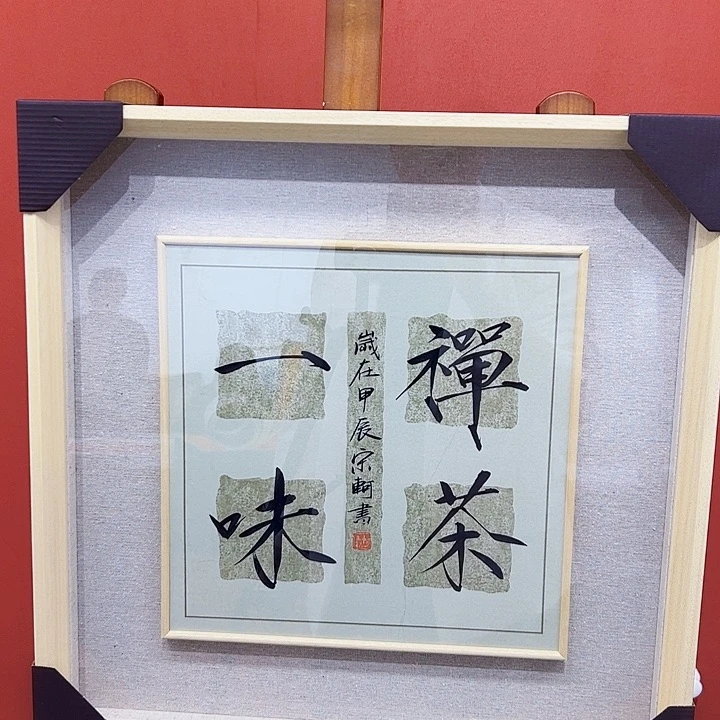 禪茶
一味
歲在甲辰宋軻書